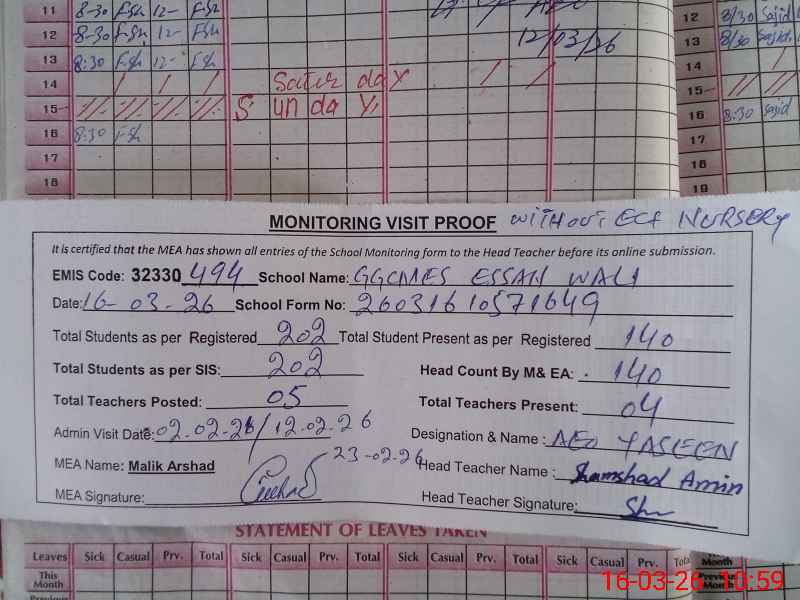 11 8-30 Fsh 12- Fsh
12 8-30 Fsh 12- Fsh 12/03/26 12 8/30 Sajid
13 8:30 Fsh 12- Fsh 13 8/30 Sajid
14 Satur day 14
15 Sunday 15
16 8:30 Fsh 16 8:30 Sajid
17 17
18 18
19
MONITORING VISIT PROOF WITHOUT ECE NURSERY
It is certified that the MEA has shown all entries of the School Monitoring form to the Head Teacher before its online submission.
EMIS Code: 32330 494 School Name: GGCMES ESSAN WALI
Date: 16-03-26 School Form No: 26031610571649
Total Students as per Registered 202 Total Student Present as per Registered 140
Total Students as per SIS: 202 Head Count By M& EA: 140
Total Teachers Posted: 05 Total Teachers Present: 04
Admin Visit Date: 02.02.26/12.02.26 Designation & Name : AEO YASEEN
23-02-26
MEA Name: Malik Arshad Head Teacher Name : Shamshad Amin
MEA Signature: Head Teacher Signature:
STATEMENT OF LEAVES TAKEN
Leaves Sick Casual Prv. Total Sick Casual Prv. Total Sick Casual Prv. Total Sick Casual Prv. Total This Month
This Month Previous
Previous
16-03-26 10:59